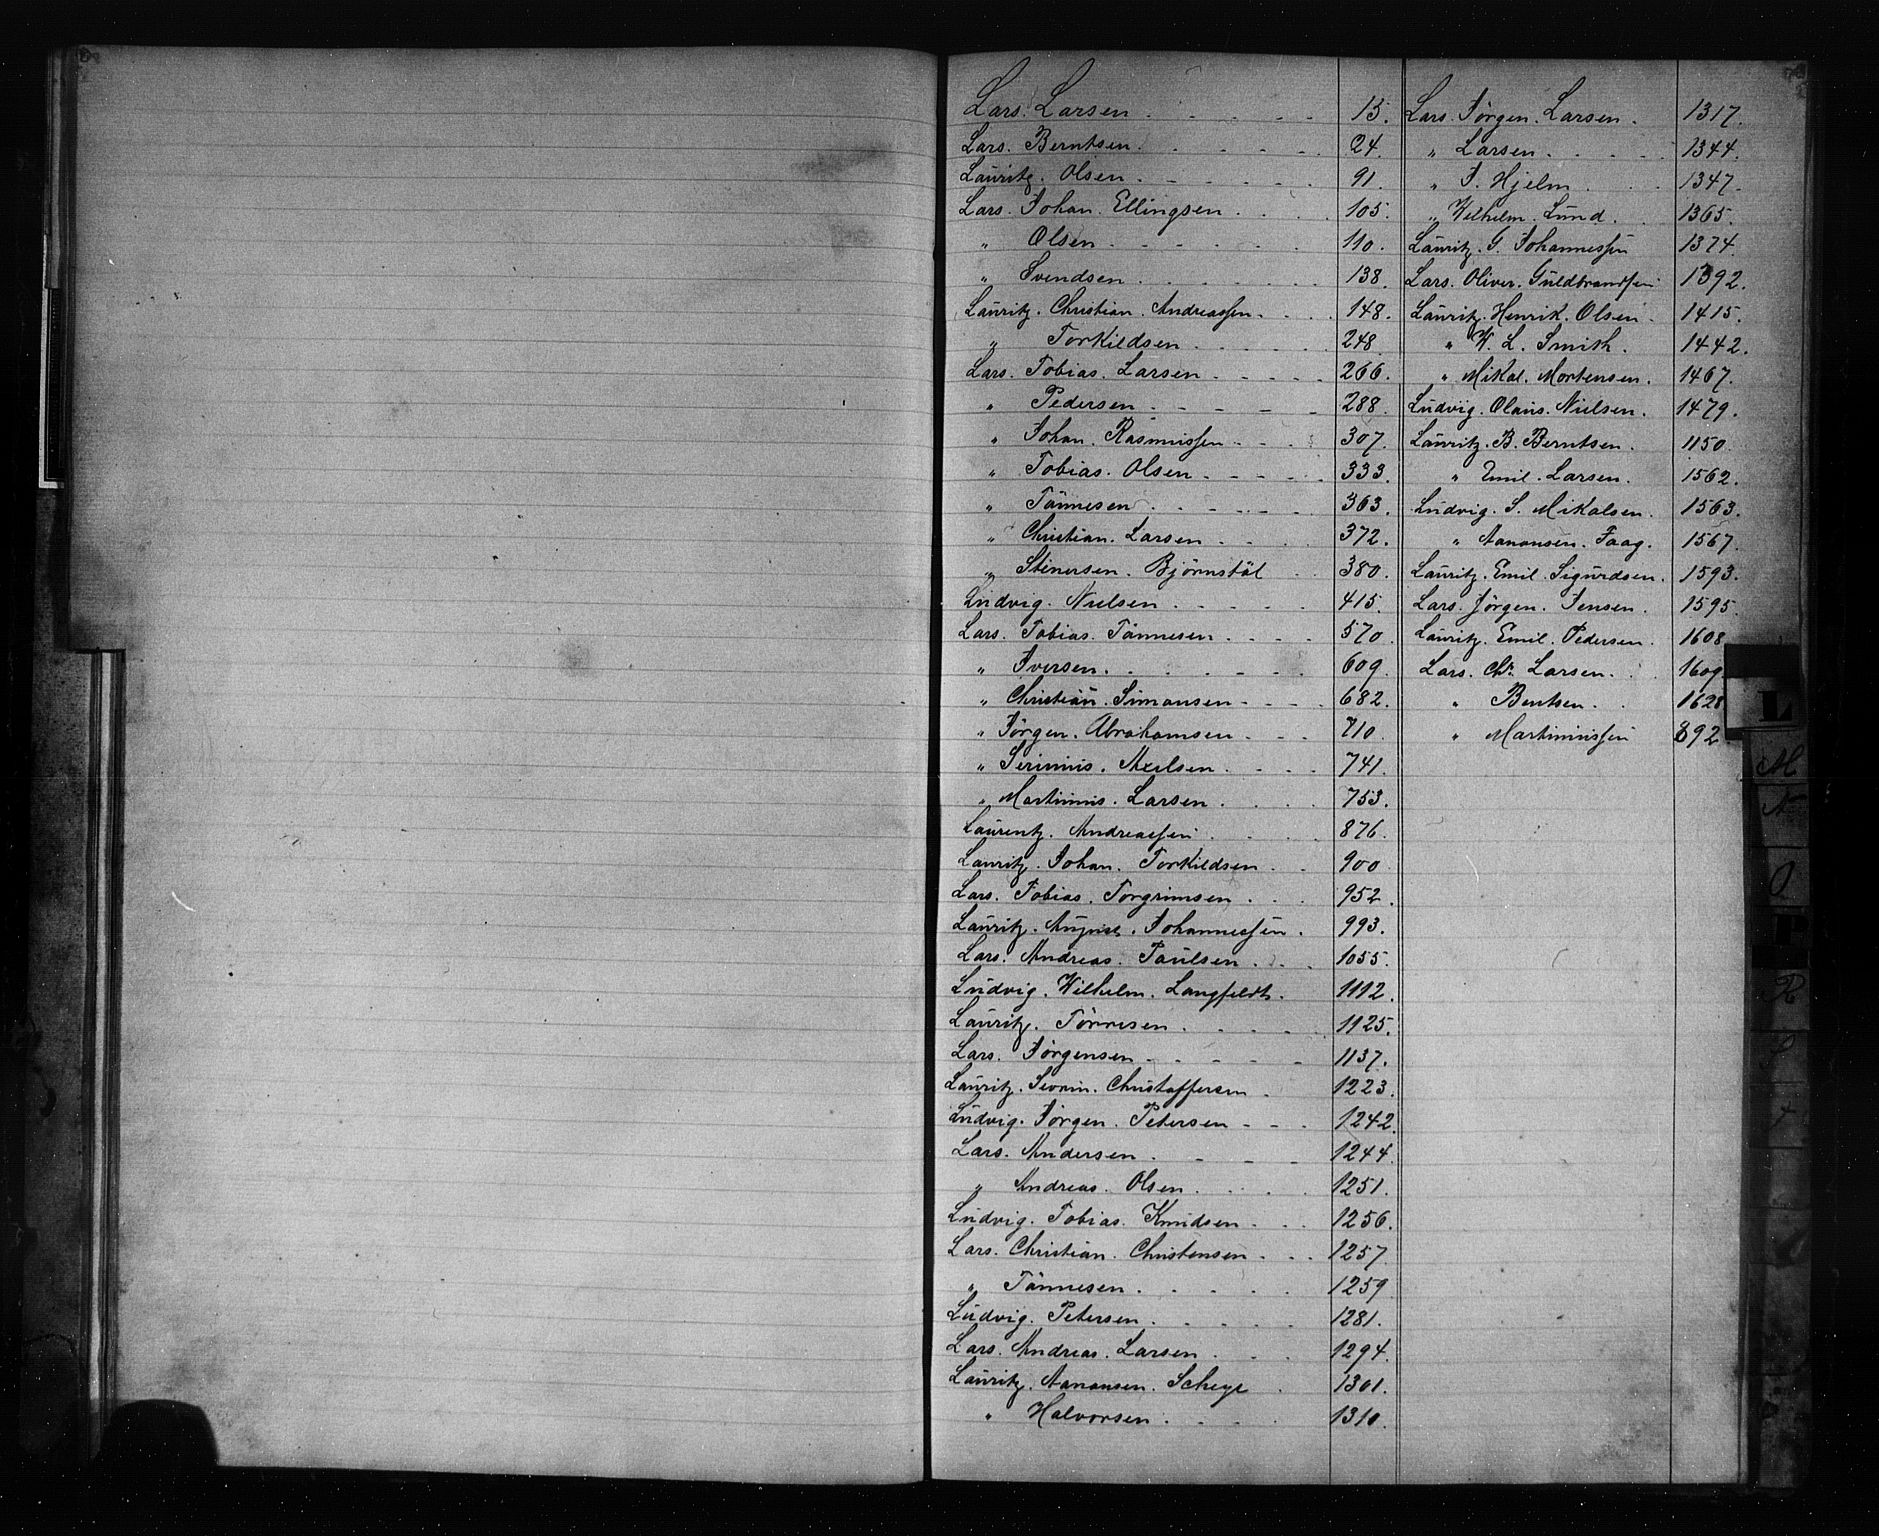 Lars. Larsen. 15.
Lars. Berntsen. 24.
Lauritz. Olsen. 91.
Lars. Johan. Ellingsen. 105.
„ Olsen. 110.
„ Svendsen. 138.
Lauritz. Christian. Andreassen. 148.
„ Torkildsen. 248.
Lars. Tobias. Larsen. 266.
„ Pedersen. 288.
„ Johan. Rasmussen. 307.
„ Tobias. Olsen. 333.
„ Tönnesen. 363.
„ Christian. Larsen. 372.
„ Stenersen. Bjørnstøl 380.
Ludvig. Nielsen. 415.
Lars. Tobias. Tönnesen. 570.
„ Iversen. 609.
„ Christian. Simonsen. 682.
„ Jørgen. Abrahamsen. 710.
„ Serinius. Axelsen. 741.
„ Martinius. Larsen. 753.
Laurentz. Andreassen. 876.
Lauritz. Johan. Torkildsen. 900
Lars. Tobias. Torgrimsen. 952.
Lauritz. August. Johannessen. 993.
Lars. Andreas. Paulsen. 1055.
Ludvig. Wilhelm. Langfeldt. 1112.
Lauritz. Törresen. 1125.
Lars. Jørgensen. 1137.
Lauritz. Severin. Christoffersen. 1223.
Ludvig. Jørgen. Petersen. 1242.
Lars. Andersen. 1244.
„ Andreas. Olsen. 1251.
Ludvig. Tobias. Knudsen. 1256.
Lars. Christian. Christensen. 1257.
„ Tönnesen. 1259.
Ludvig. Petersen. 1281.
Lars. Andreas. Larsen. 1294.
Lauritz. Aanonsen. 1301.
„ Halvorsen. 1310.
Lars. Jørgen. Larsen. 1317.
„ Larsen. 1344.
„ J. Hjelm. 1347.
„ Wilhelm. Lund. 1365.
Lauritz. G. Johannessen 1374.
Lars. Oliver. Guldbrandsen 1392.
Lauritz. Henrik. Olsen. 1415.
„ W. L. Smith. 1442.
„ Mikal. Mortensen. 1467.
Ludvig. Olaus. Nielsen. 1479.
Lauritz. B. Berntsen. 1150.
„ Emil. Larsen. 1562.
Ludvig. S. Mikalsen. 1563.
„ Aanonsen. Faag. 1567.
Lauritz. Emil. Sigurdsen. 1593.
Lars. Jørgen. Jensen. 1595.
Lauritz. Emil. Pedersen. 1608.
Lars. Chr. Larsen. 1609.
„ Bentsen. 1628
„ Martiniussen 892
L
M
N
O
R